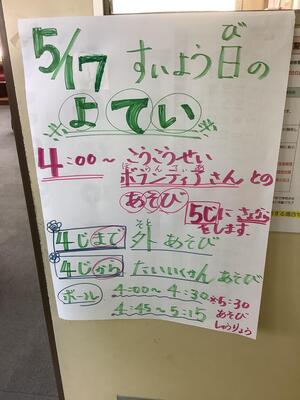 5/17 すいよう日の
び
よてい
4:00～ こうこうせい
ぼらんてぃあ
ボランティアさん との
あそび
5Cに さよなら
をします
そと
4じまで 外 あそび
4じから たいいくかん あそび
ボール 4:00～4:30
4:45～5:15
※5:30
あそび
しゅうりょう